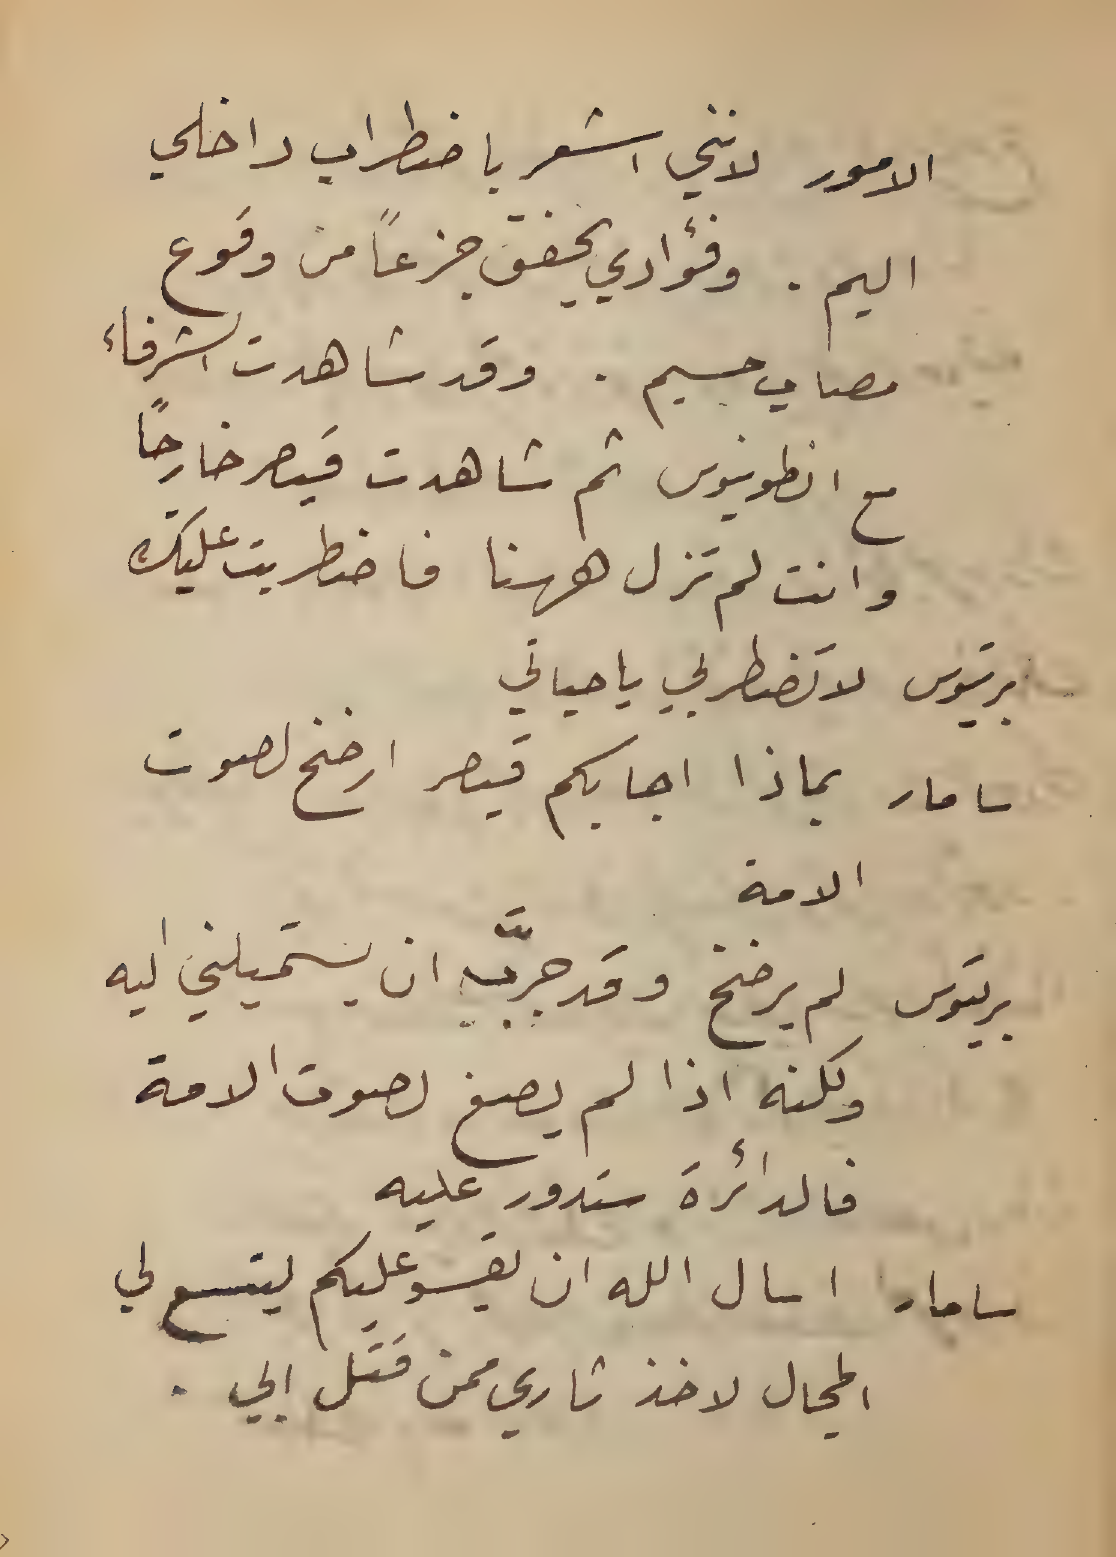 الامور لانني اشعر باضطراب داخلي
اليم . وفؤادي يخفق جزعاً من وقوع
مصاب جسيم . وقد شاهدت الشرفاء
مع انطونيوس ثم شاهدت قيصر خارجاً
وانت لم تزل ههنا فاضطربت عليك
بريتوس لا تضطربي يا حياتي
سامار بماذا اجابكم قيصر ارضخ لصوت
الامة
بريتوس لم يرضخ وقد جرّب ان يستميلني اليه
ولكنه اذا لم يصغ لصوت الامة
فالدائرة ستدور عليه
سامار اسال الله ان يقسو عليكم ليتسع لي
المجال لاخذ ثاري ممن قتل ابي .